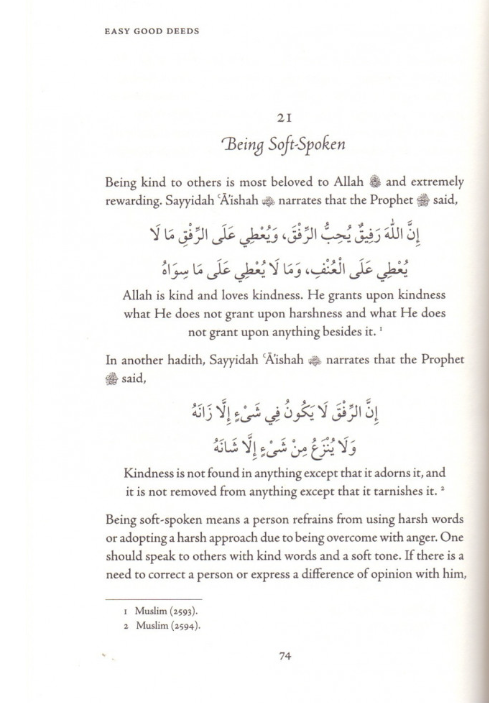 EASY GOOD DEEDS
21
Being Soft-Spoken
Being kind to others is most beloved to Allah ﷻ and extremely
rewarding. Sayyidah ʿĀʾishah narrates that the Prophet ﷺ said,
إِنَّ اللّٰهَ رَفِيقٌ يُحِبُّ الرِّفْقَ، وَيُعْطِي عَلَى الرِّفْقِ مَا لَا
يُعْطِي عَلَى الْعُنْفِ، وَمَا لَا يُعْطِي عَلَى مَا سِوَاهُ
Allah is kind and loves kindness. He grants upon kindness
what He does not grant upon harshness and what He does
not grant upon anything besides it. ¹
In another hadith, Sayyidah ʿĀʾishah narrates that the Prophet
ﷺ said,
إِنَّ الرِّفْقَ لَا يَكُونُ فِي شَيْءٍ إِلَّا زَانَهُ
وَلَا يُنْزَعُ مِنْ شَيْءٍ إِلَّا شَانَهُ
Kindness is not found in anything except that it adorns it, and
it is not removed from anything except that it tarnishes it. ²
Being soft-spoken means a person refrains from using harsh words
or adopting a harsh approach due to being overcome with anger. One
should speak to others with kind words and a soft tone. If there is a
need to correct a person or express a difference of opinion with him,
1 Muslim (2593).
2 Muslim (2594).
74